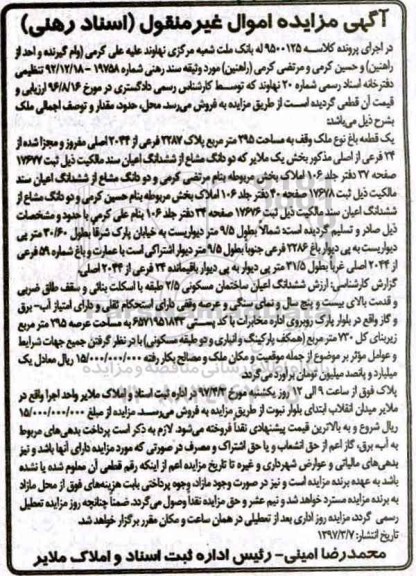 آگهی مزایده اموال غیرمنقول (اسناد رهنی)
در اجرای پرونده کلاسه ۹۵۰۰۱۲۵ له بانک ملت شعبه مرکزی نهاوند علیه علی کرمی (وام گیرنده و احد از
راهنین) و حسین کرمی و مرتضی کرمی (راهنین) مورد وثیقه سند رهنی شماره ۱۹۷۵۸ – ۹۲/۱۲/۱۸ تنظیمی
دفترخانه اسناد رسمی شماره ۲۰ نهاوند که توسط کارشناس رسمی دادگستری در مورخ ۹۶/۸/۱۶ ارزیابی و
قیمت آن قطعی گردیده است از طریق مزایده به فروش می‌رسد. محل، حدود، مقدار و توصیف اجمالی ملک
بشرح ذیل می‌باشد:
یک قطعه باغ نوع ملک وقف به مساحت ۲۹۵ متر مربع پلاک ۲۲۸۷ فرعی از ۲۰۴۴ اصلی مفروز و مجزا شده از
۲۴ فرعی از اصلی مذکور بخش یک ملایر که دو دانگ مشاع از ششدانگ اعیان سند مالکیت ذیل ثبت ۱۷۶۷۷
صفحه ۳۷ دفتر جلد ۱۰۶ املاک بخش مربوطه بنام مرتضی کرمی و دو دانگ مشاع از ششدانگ اعیان سند
مالکیت ذیل ثبت ۱۷۶۷۸ صفحه ۴۰ دفتر جلد ۱۰۶ املاک مربوطه بنام حسین کرمی و دو دانگ مشاع از
ششدانگ اعیان سند مالکیت ذیل ثبت ۱۷۶۷۶ صفحه ۳۴ دفتر جلد ۱۰۶ بنام علی کرمی با حدود و مشخصات
ذیل صادر و تسلیم گردیده است: شمالاً بطول ۹/۵ متر دیواریست به خیابان پارک شرقاً بطول ۳۰/۶۰ متر پی
دیواریست به پی دیوار باغ ۲۲۸۶ فرعی جنوباً بطول ۹/۵ متر دیوار اشتراکی است با عمارت و باغ شماره ۵۹ فرعی
از ۲۰۴۴ اصلی غرباً بطول ۳۱/۵ متر پی دیوار به پی دیوار باقیمانده ۲۴ فرعی از ۲۰۴۴ اصلی.
گزارش کارشناسی: ارزش ششدانگ اعیان ساختمان مسکونی ۲/۵ طبقه با اسکلت بنائی و سقف طاق ضربی
و قدمت بالای بیست و پنج سال و نمای سنگی و عرصه وقفی دارای استحکام ثقلی و دارای امتیاز آب- برق
و گاز واقع در بلوار پارک روبروی اداره مخابرات با کد پستی ۶۵۷۱۹۵۱۸۳۳ به مساحت عرصه ۲۹۵ متر مربع
زیربنای کل ۷۳۰ متر مربع (همکف پارکینگ و انباری و دو طبقه مسکونی) با در نظر گرفتن جمیع جهات شرایط
و عوامل مؤثر بر موضوع از جمله موقعیت و مکان ملک و مصالح بکار رفته ۱۵/۰۰۰/۰۰۰/۰۰۰ ریال معادل یک
میلیارد و پانصد میلیون تومان برآورد می‌گردد.
پلاک فوق از ساعت ۹ الی ۱۲ روز یکشنبه مورخ ۹۷/۴/۳ در اداره ثبت اسناد و املاک ملایر واحد اجرا واقع در
ملایر میدان انقلاب ابتدای بلوار نبوت از طریق مزایده به فروش می‌رسد. مزایده از مبلغ ۱۵/۰۰۰/۰۰۰/۰۰۰
ریال شروع و به بالاترین قیمت پیشنهادی نقداً فروخته می‌شود. لازم به ذکر است پرداخت بدهی‌های مربوط
به آب، برق، گاز اعم از حق انشعاب و یا حق اشتراک و مصرف در صورتی که مورد مزایده دارای آنها باشد و نیز
بدهی‌های مالیاتی و عوارض شهرداری و غیره تا تاریخ مزایده اعم از اینکه رقم قطعی آن معلوم شده یا نشده
باشد به عهده برنده مزایده است و نیز در صورت وجود مازاد، وجوه پرداختی بابت هزینه‌های فوق از محل مازاد
به برنده مزایده مسترد خواهد شد و نیم عشر و حق مزایده نقداً وصول می‌گردد. ضمناً چنانچه روز مزایده تعطیل
رسمی گردد، مزایده روز اداری بعد از تعطیلی در همان ساعت و مکان مقرر برگزار خواهد شد.
تاریخ انتشار: ۱۳۹۷/۳/۷
محمدرضا امینی- رئیس اداره ثبت اسناد و املاک ملایر